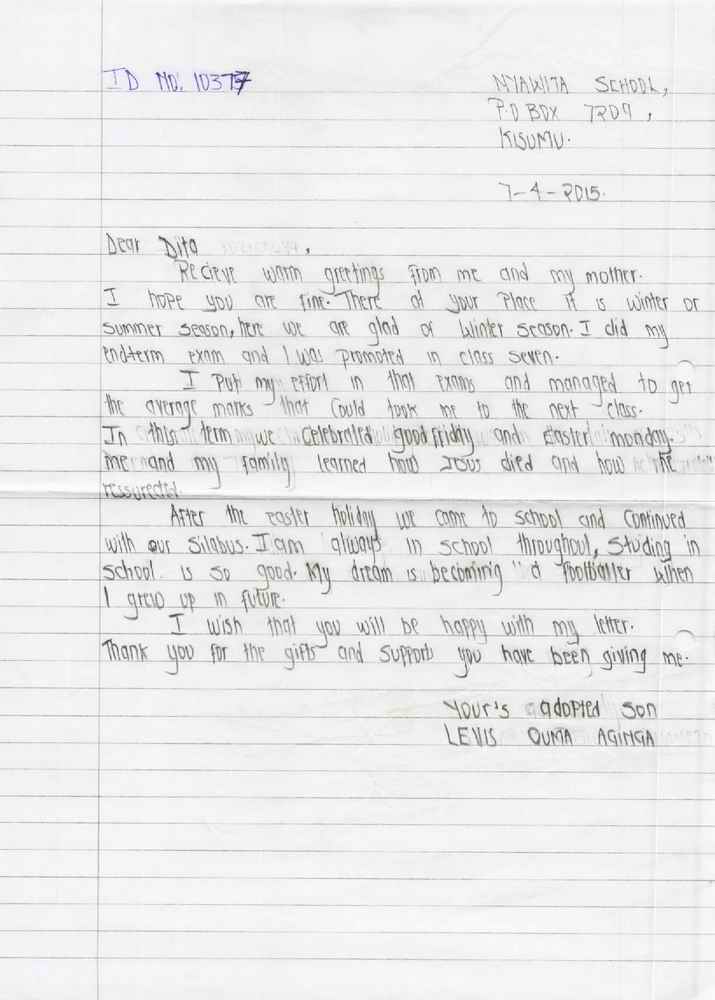 ID NO. 10377
NYAWITA SCHOOL,
P.O BOX 7209,
KISUMU.
7-4-2015.
Dear Dita ,
Recieve warm greetings from me and my mother.
I hope you are fine. There at your place it is winter or
summer season, here we are glad of winter season. I did my
endterm exam and I was promoted in class seven.
I put my effort in that exams and managed to get
the average marks that could took me to the next class.
In this term we celebrated good friday and Easter monday.
me and my family learned how Jesus died and how he
ressurected
After the easter holiday we came to school and continued
with our silabus. I am always in school throughout, studing in
school is so good. My dream is becoming a footballer when
I grew up in future.
I wish that you will be happy with my letter.
Thank you for the gifts and support you have been giving me.
Your's adopted son
LEVIS OUMA AGINGA